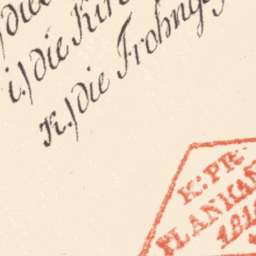 i.) die Kir
k.) die Frohng
K: PR:
PLANKAM
1816